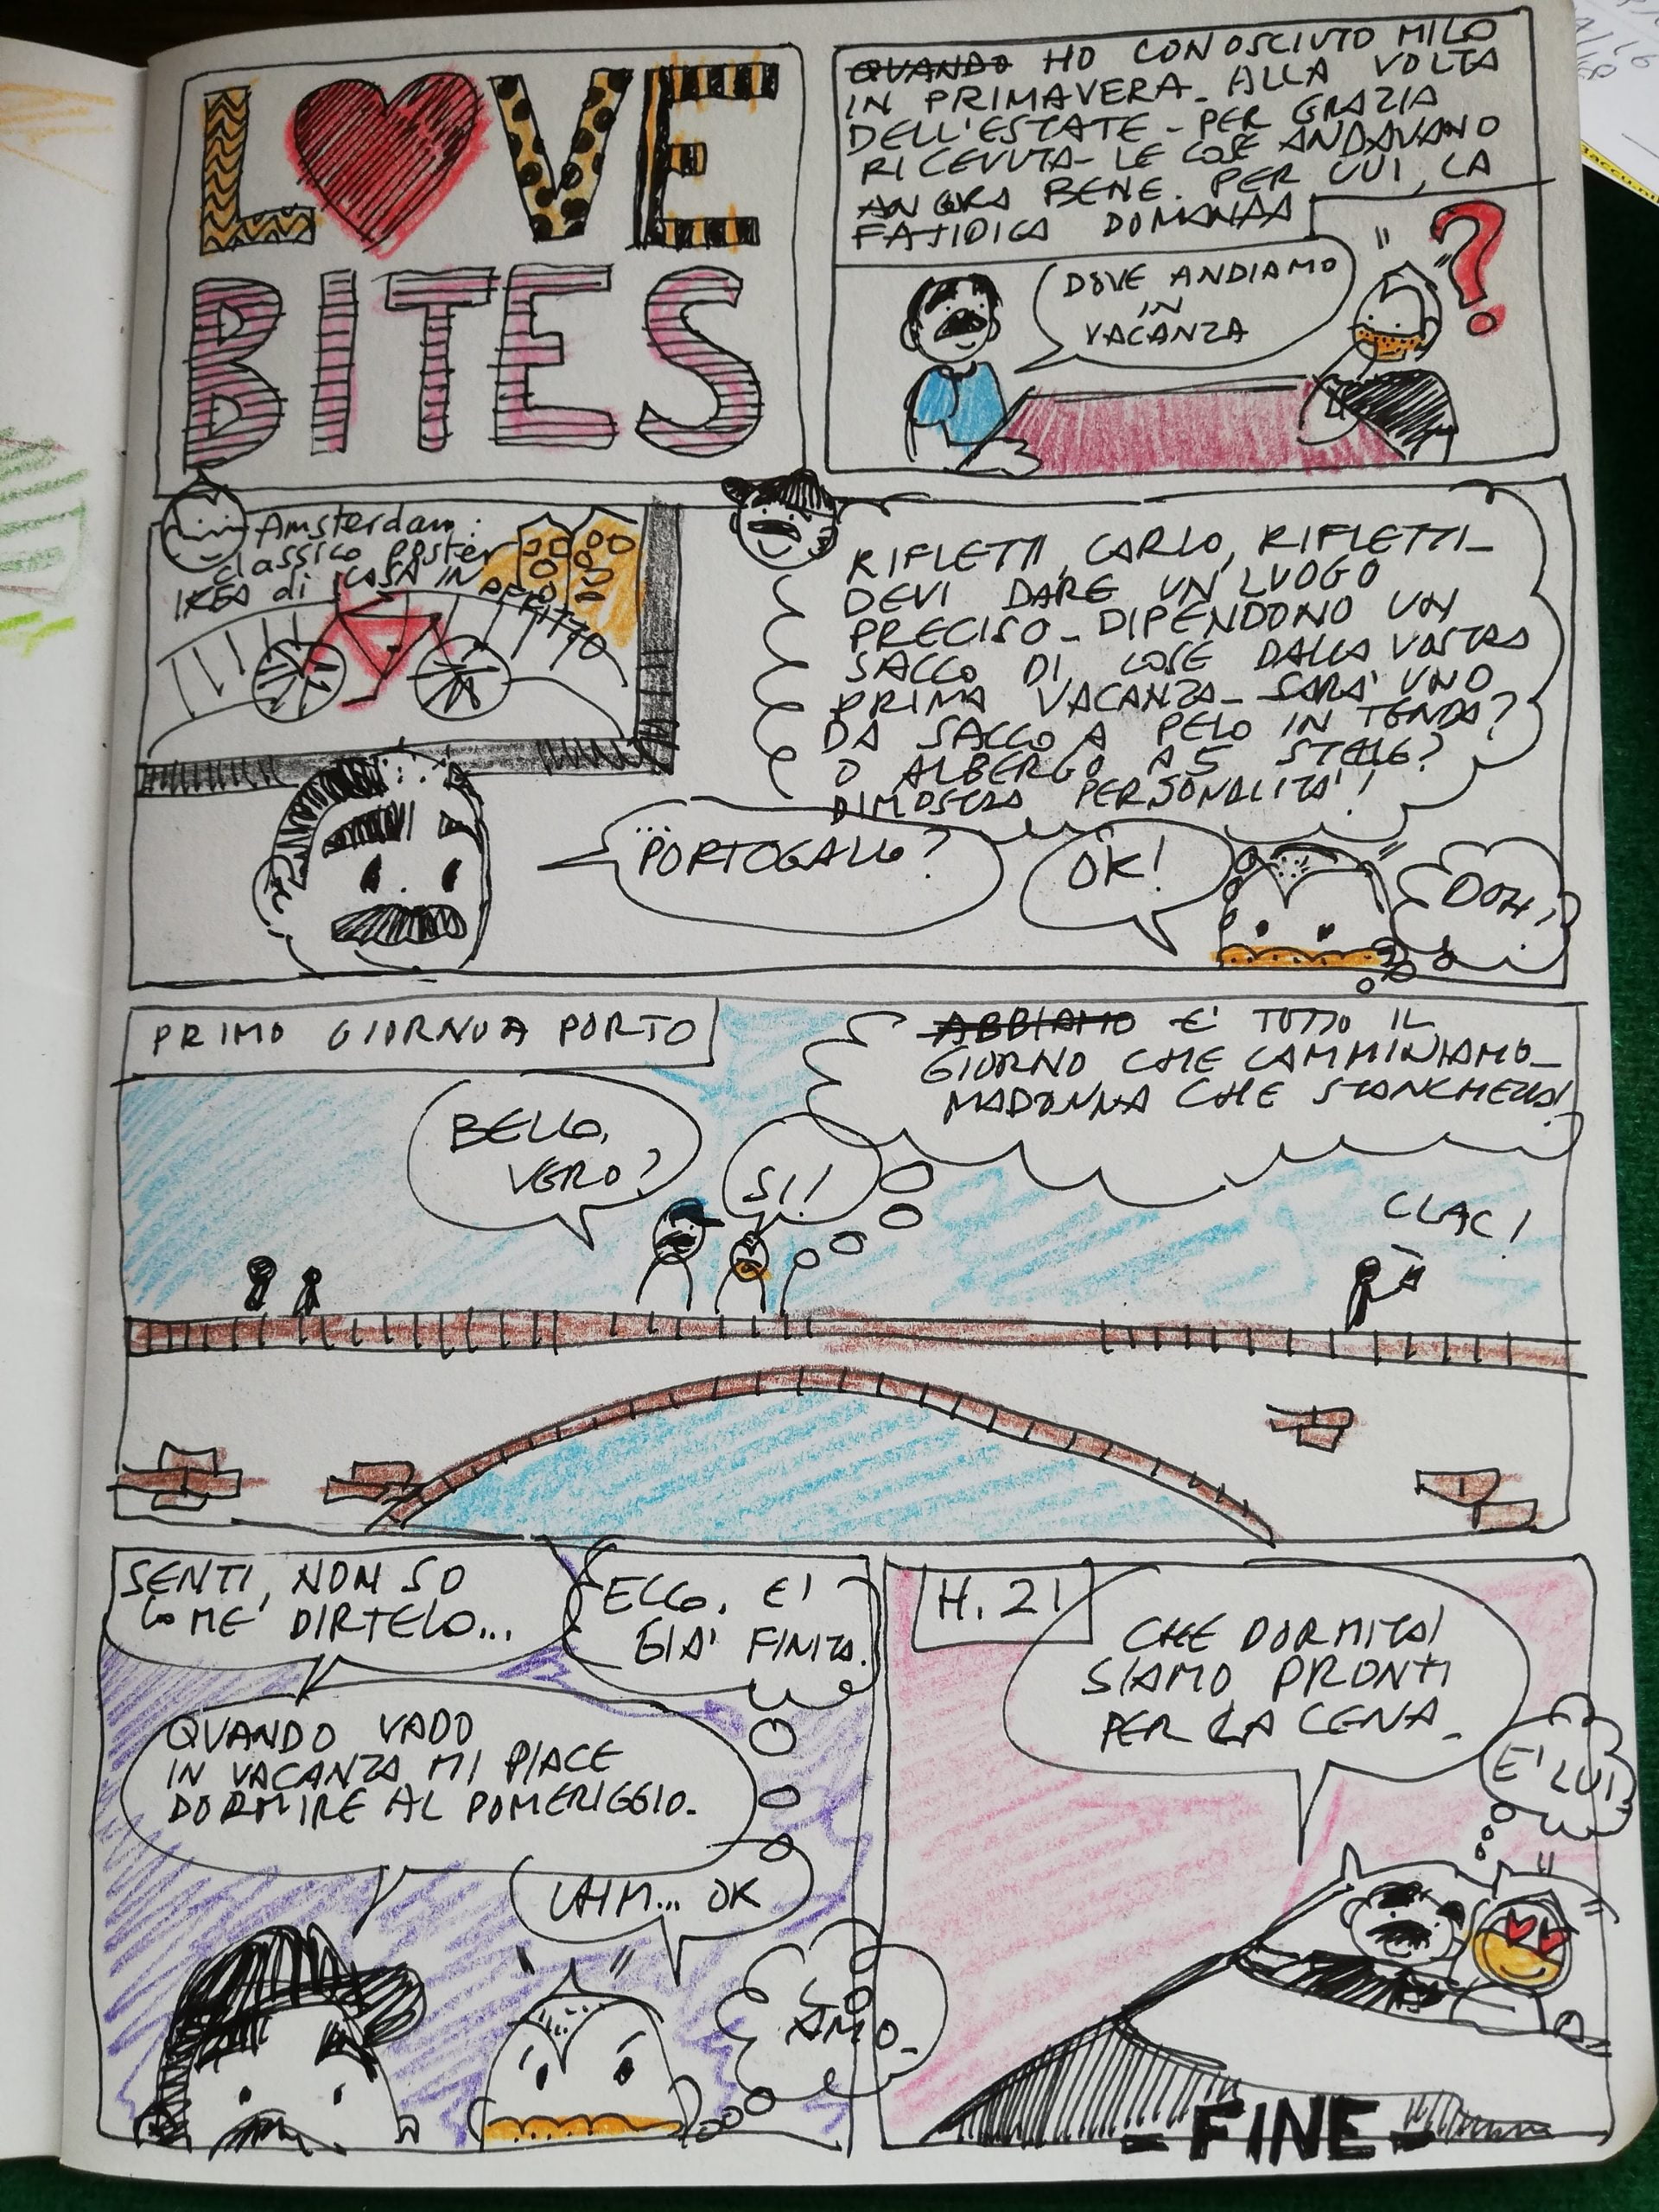 LOVE
BITES
QUANDO HO CONOSCIUTO MILO
IN PRIMAVERA. ALLA VOLTA
DELL'ESTATE - PER GRAZIA
RICEVUTA - LE COSE ANDAVANO
ANCORA BENE. PER CUI, LA
FATIDICA DOMANDA
?
DOVE ANDIAMO
IN
VACANZA
Amsterdam:
classico poster
IKEA di CASA IN
AFFITTO
RIFLETTI, CARLO, RIFLETTI_
DEVI DARE UN LUOGO
PRECISO_ DIPENDONO UN
SACCO DI COSE DALLA VOSTRA
PRIMA VACANZA_ SARA' UNO
DA SACCO A PELO IN TENDA?
O ALBERGO A 5 STELLE?
DIMOSTRA PERSONALITA'!
...
PORTOGALLO?
OK!
DOH!
PRIMO GIORNO A PORTO
ABBIAMO E' TUTTO IL
GIORNO CHE CAMMINIAMO_
MADONNA CHE STANCHEZZA!
BELLO,
VERO?
SI!
CLAC!
SENTI, NON SO
COME DIRTELO...
ECCO. E'
GIA' FINITA.
QUANDO VADO
IN VACANZA MI PIACE
DORMIRE AL POMERIGGIO.
UHM... OK
AMO_
H. 21
CHE DORMITA!
SIAMO PRONTI
PER LA CENA_
E' LUI
- FINE -